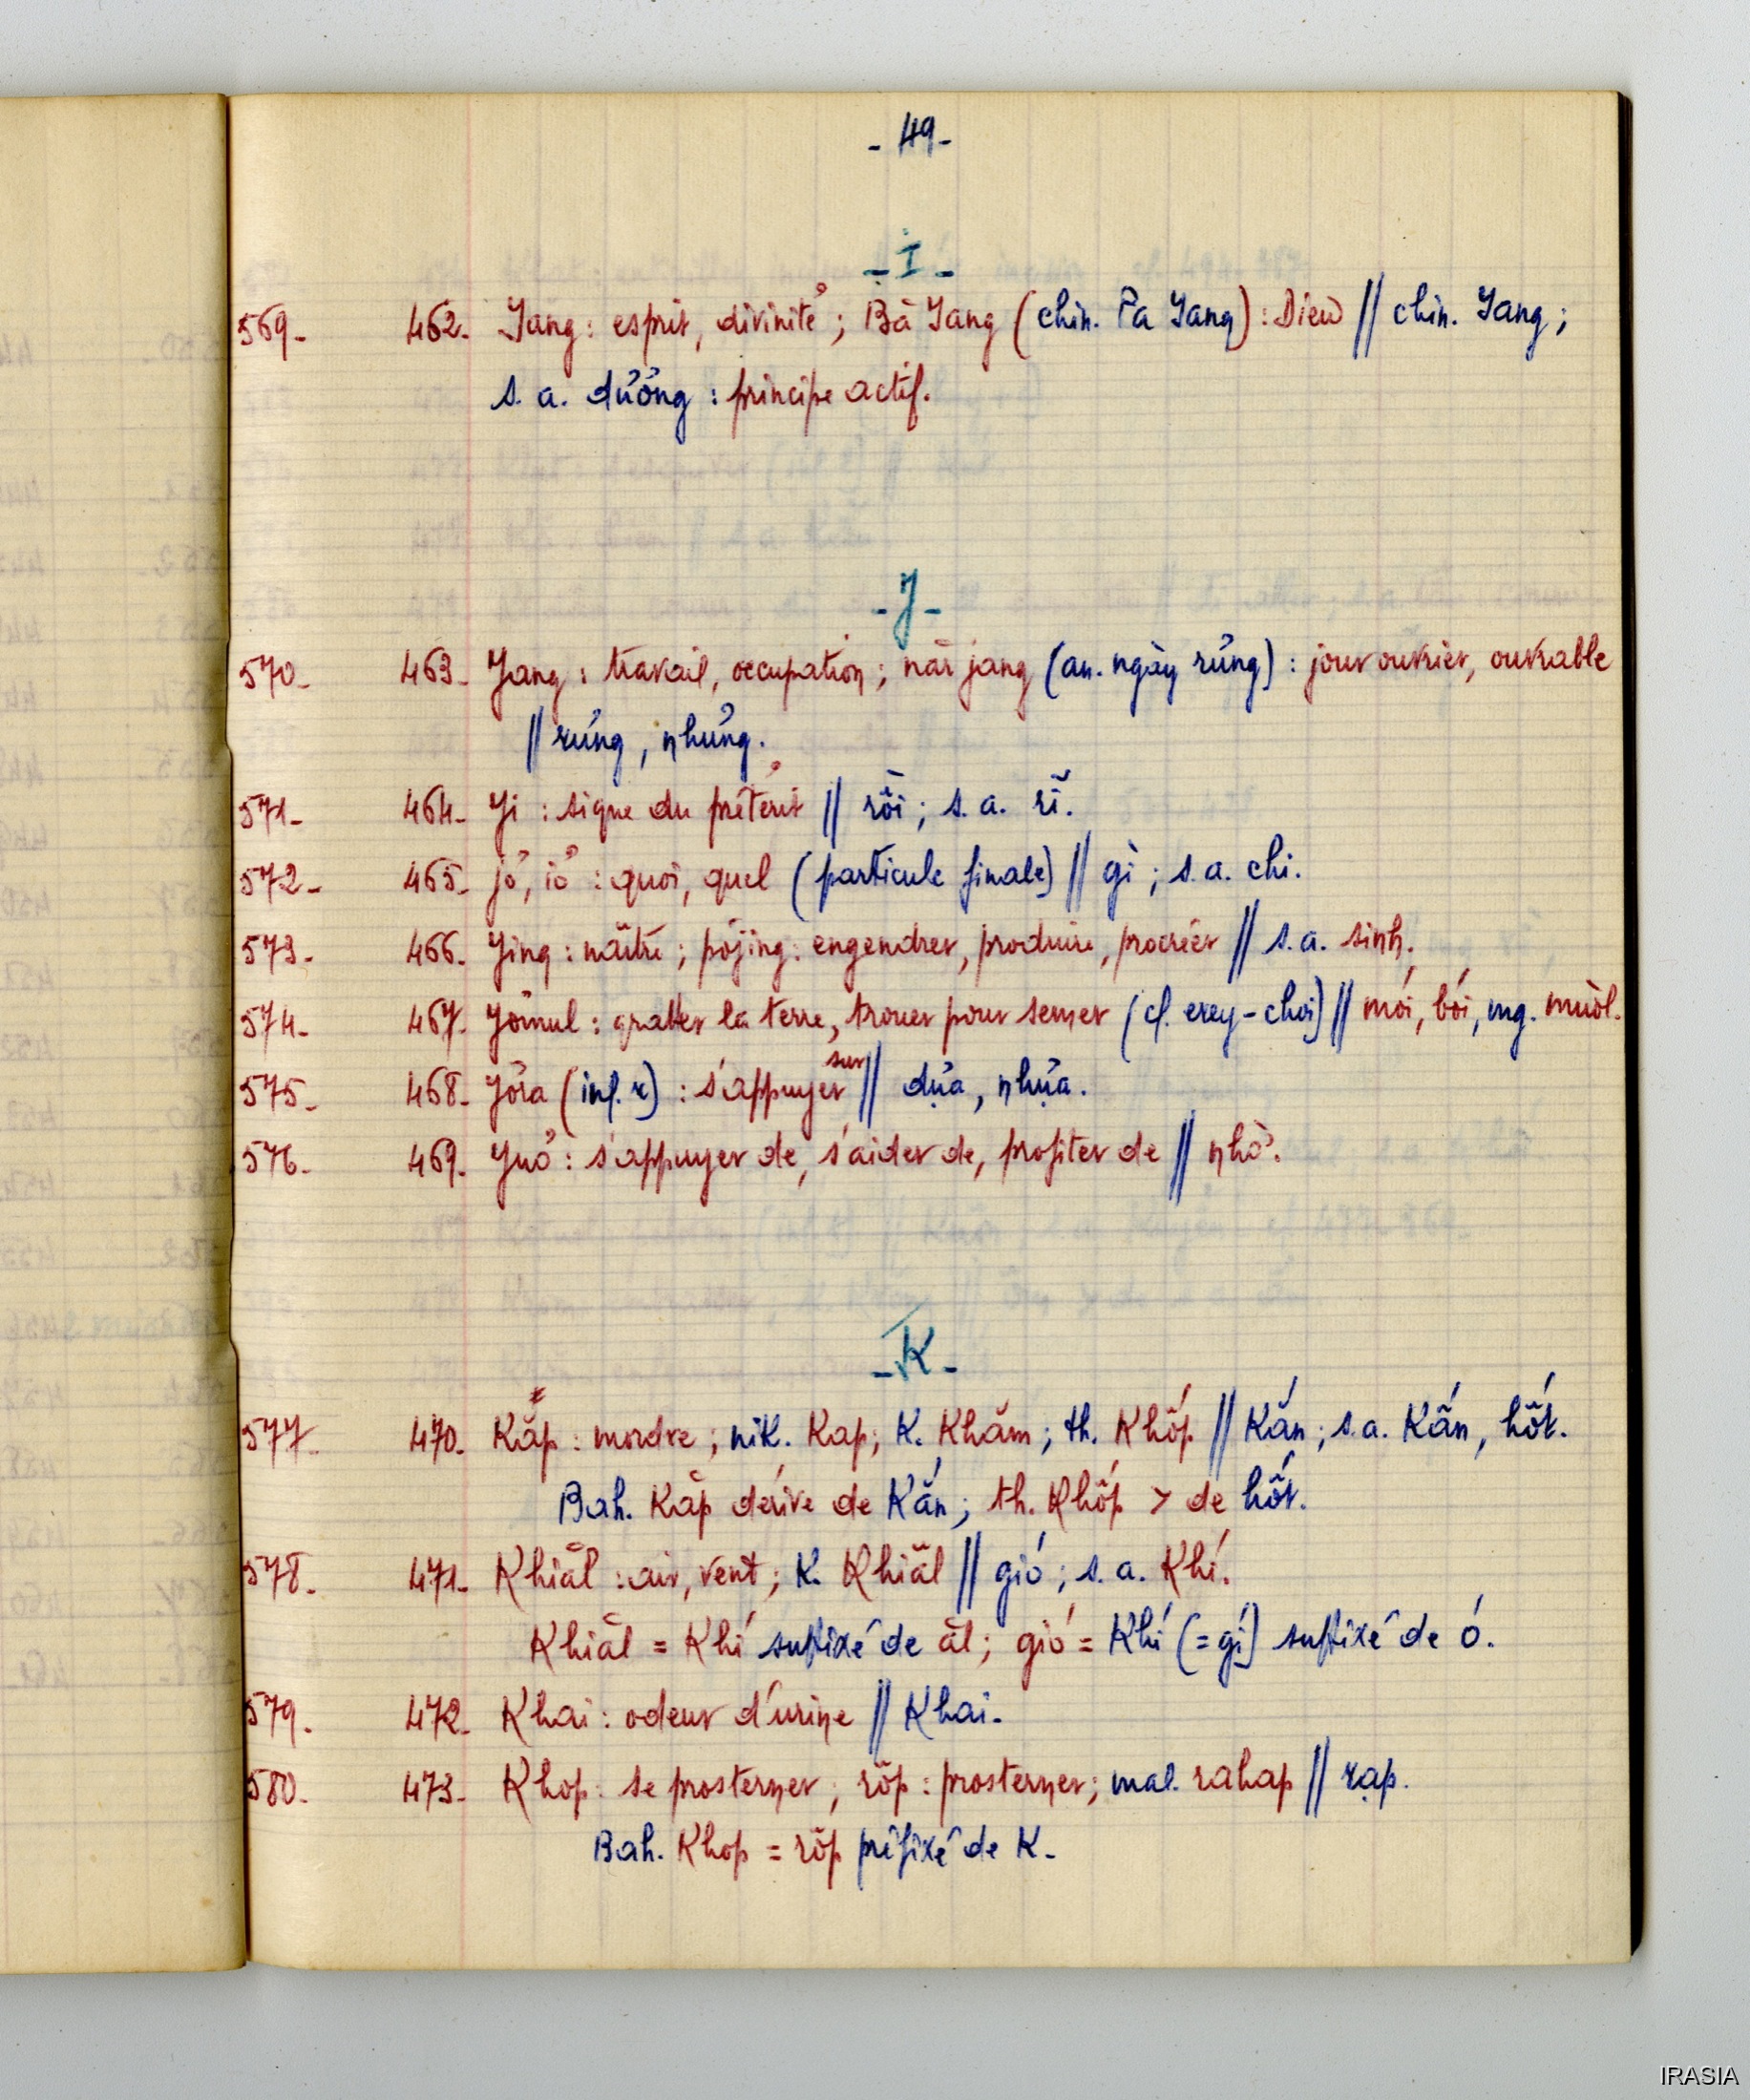 - 49 -
- I -
569- 462- Iang : esprit, divinité ; Bă Iang (chin. Pa Iang) : Dieu // chin. Iang ;
s. a. dương : principe actif.
- J -
570- 463- Jang : travail, occupation ; năr jang (an. ngày rưng) : jour ouvrier, ouvrable
// rưng, nhưng.
571- 464- Ji : signe du prétérit // rồi ; s. a. rĩ.
572- 465- jơ, iơ : quoi, quel (particule finale) // gì ; s. a. chi.
573- 466- Jing : naître ; pơjing : engendrer, produire, procréer // s. a. sinh.
574- 467- Jômul : gratter la terre, trouer pour semer (cf. erey - choi) // mói, bói, mg. muòl.
575- 468- Jôra (inf. r) : s'appuyer sur // dựa, nhựa.
576- 469- Jnơ : s'appuyer de, s'aider de, profiter de // nhờ.
- K -
577- 470- Kăp : mordre ; nik. Kap ; K. Khăm ; th. Khốp // Kắn ; s. a. Kấn, hốt.
Bah. Kăp dérive de Kắn ; th. Khốp > de hốt.
578- 471- Khiăl : air, vent ; K. Khiăl // gió ; s. a. Khí.
Khiăl = Khí suffixé de ăl ; gió = Khí (= gí) suffixé de ó.
579- 472- Khai : odeur d'urine // Khai.
580- 473- Khop : se prosterner ; rôp : prosterner ; mal. rahap // rạp.
Bah. Khop = rôp préfixé de K.
IRASIA